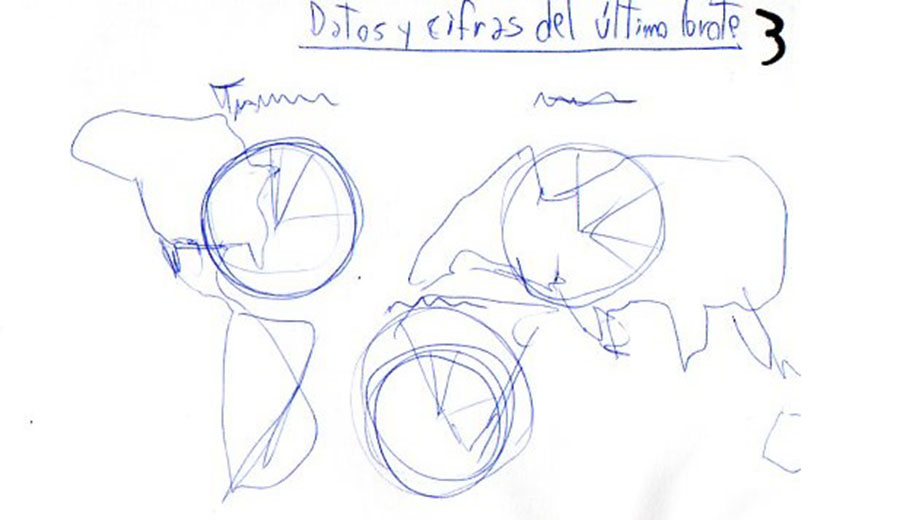 Datos y cifras del último brote 3